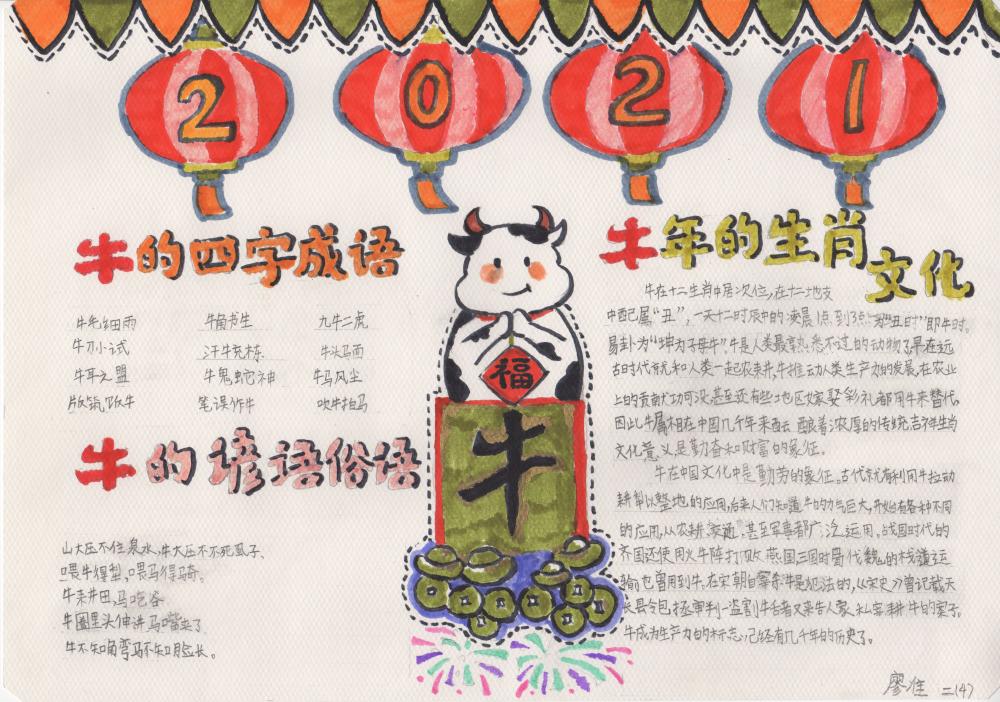 2021
牛的四字成语
牛毛细雨 牛角书生 九牛二虎
牛刀小试 汗牛充栋 牛头马面
牛耳之盟 牛鬼蛇神 牛马风尘
版筑饭牛 笔误作牛 吹牛拍马
牛的谚语俗语
山大压不住泉水,牛大压不死虱子、
喂牛得犁,喂马得骑。
牛耒井田,马吃谷
牛圈里头伸进马嘴来了
牛不知角弯马不知脸长。
福
牛
牛年的生肖
文化
牛在十二生肖中居次位,在十二地支
中配属“丑”,一天十二时辰中的凌晨1点到3点为“丑时”即牛时。
易卦为“坤为子母牛”,牛是人类最熟悉不过的动物了,早在远
古时代就和人类一起农耕,牛推动人类生产力的发展,在农业
上的贡献功可没,甚至还有些地区嫁娶彩礼都用牛来替代,
因此牛属相在中国几千年来酝酿着浓厚的传统吉祥生肖
文化意义是勤奋和财富的象征。
牛在中国文化中是勤劳的象征。古代就有利用牛拉动
耕犁以整地的应用,后来人们知道牛的力气巨大,开始有各种不同
的应用,从农耕,交通,甚至军事都广泛运用。战国时代的
齐国还使用火牛阵打败燕国三国时蜀代魏的栈道运
输也曾用到牛,在宋朝宰杀牛是犯法的,《宋史》曾记载天
长县令包拯审判一盗割牛舌者又来告人家私宰耕牛的案子。
牛成为生产力的标志,已经有几千年的历史了。
廖佳 二(4)